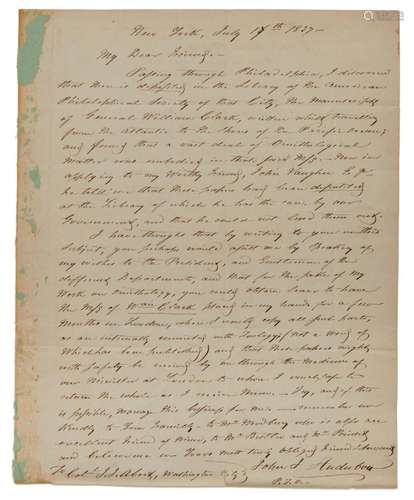 New York, July 17th 1837-
My Dear Friend,-
Passing through Philadelphia, I discovered
that there is deposited in the Library of the American
Philosophical Society of that City, the Manuscripts
of General William Clark, written whilst travelling
from the Atlantic to the Shores of the Pacific Ocean;
and found that a vast deal of Ornithological
Matter was embodied in that MSS.- Now in
applying to my Worthy Friend, John Vaughn Esqr
he told me that these papers had been deposited
at the Library of which he has the care by our
Government, and that he could not lend them out.
I have thought that by writing to you on this
Subject, you perhaps would assist me by Speaking of
my wishes to the President, and Gentlemen of the
different Departments, and that for the sake of my
Work on Ornithology, you could obtain leave to have
the MSS of Wm Clark placed in my hands for a few
Months in London, when I would copy all such parts,
as are intimately connected with Zoology (not a word of
which has been published) and that these papers might
with safety be sent by me through the Medium of
our Minister at London to whom I would pay to
return the whole as I receive them.- Try, and if this
is possible, manage this business for me.- remember me
kindly to your Family, to Mr Woodbury who is also an
excellent friend of mine, to Mr
and believe me your most truly obliged friend & servant
John J. Audubon
To Col. J. J. Abert, Washington City